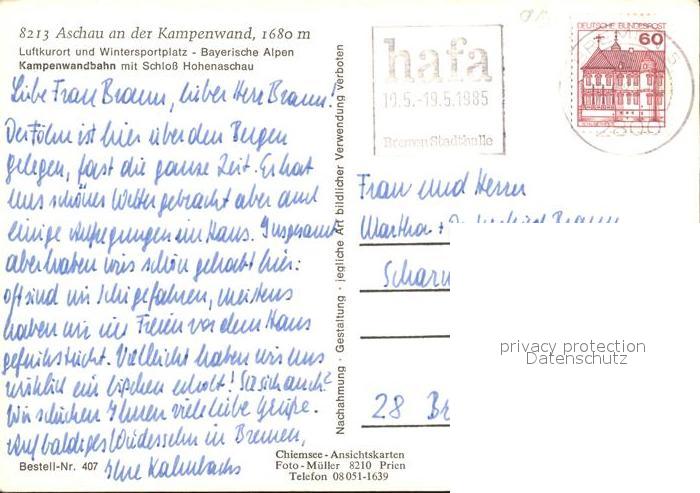 8213 Aschau an der Kampenwand, 1680 m
Luftkurort und Wintersportplatz - Bayerische Alpen
Kampenwandbahn mit Schloß Hohenaschau
Liebe Frau Braun, lieber Herr Braun!
Der Föhn ist hier über den Bergen
gelegen, fast die ganze Zeit. Er hat
uns schönes Wetter gebracht aber auch
einige Aufregungen im Haus. Insgesamt
aber haben wir's schön gehabt hier:
oft sind wir Ski gefahren, meistens
haben wir im Freien vor dem Haus
gefrühstückt. Vielleicht haben wir uns
wirklich ein bißchen erholt! Sie sich auch?
Wir schicken Ihnen viele liebe Grüße.
Auf baldiges Wiedersehn in Bremen,
Ihre Kalmbachs
Bestell-Nr. 407
Nachahmung - Gestaltung - jegliche Art bildlicher Verwendung verboten
Chiemsee-Ansichtskarten
Foto-Müller 8210 Prien
Telefon 08051-1639
hafa
10.5.-19.5.1985
Bremen Stadthalle
DEUTSCHE BUNDESPOST
60
2800
Frau und Herrn
Martha + Braun
Scharn
28 Br
privacy protection
Datenschutz